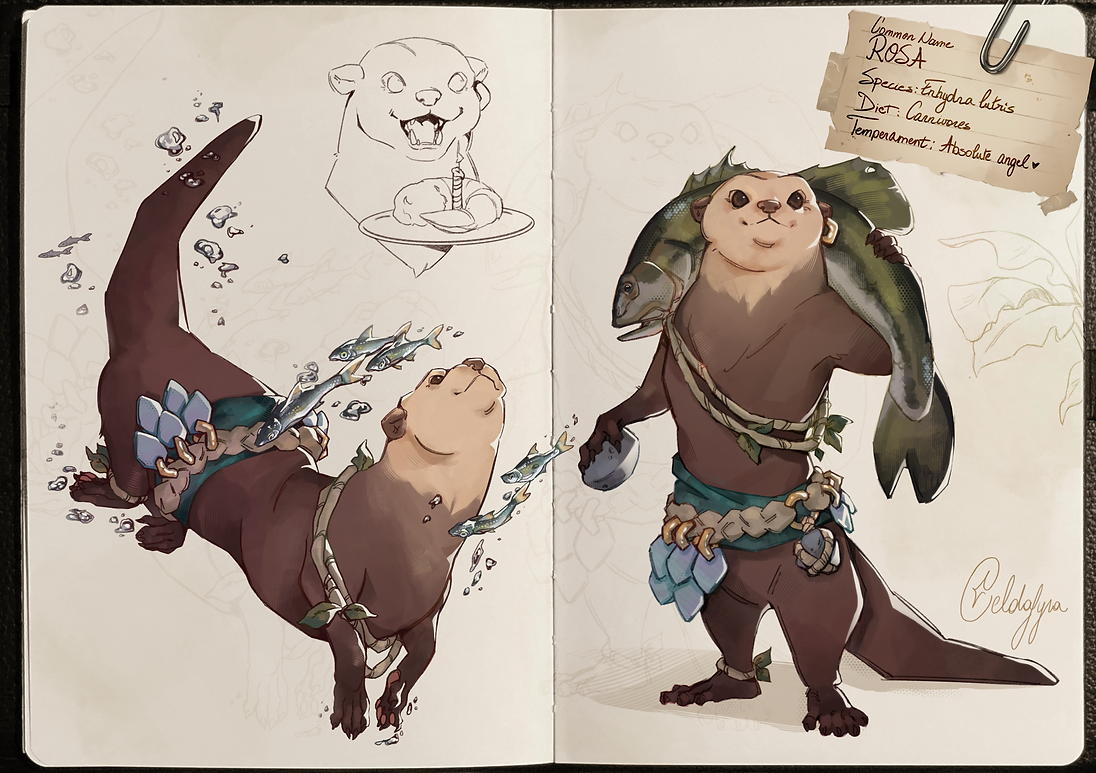 Common Name
ROSA
Species: Enhydra lutris
Diet: Carnivores
Temperament: Absolute angel ♥
Celdafyra